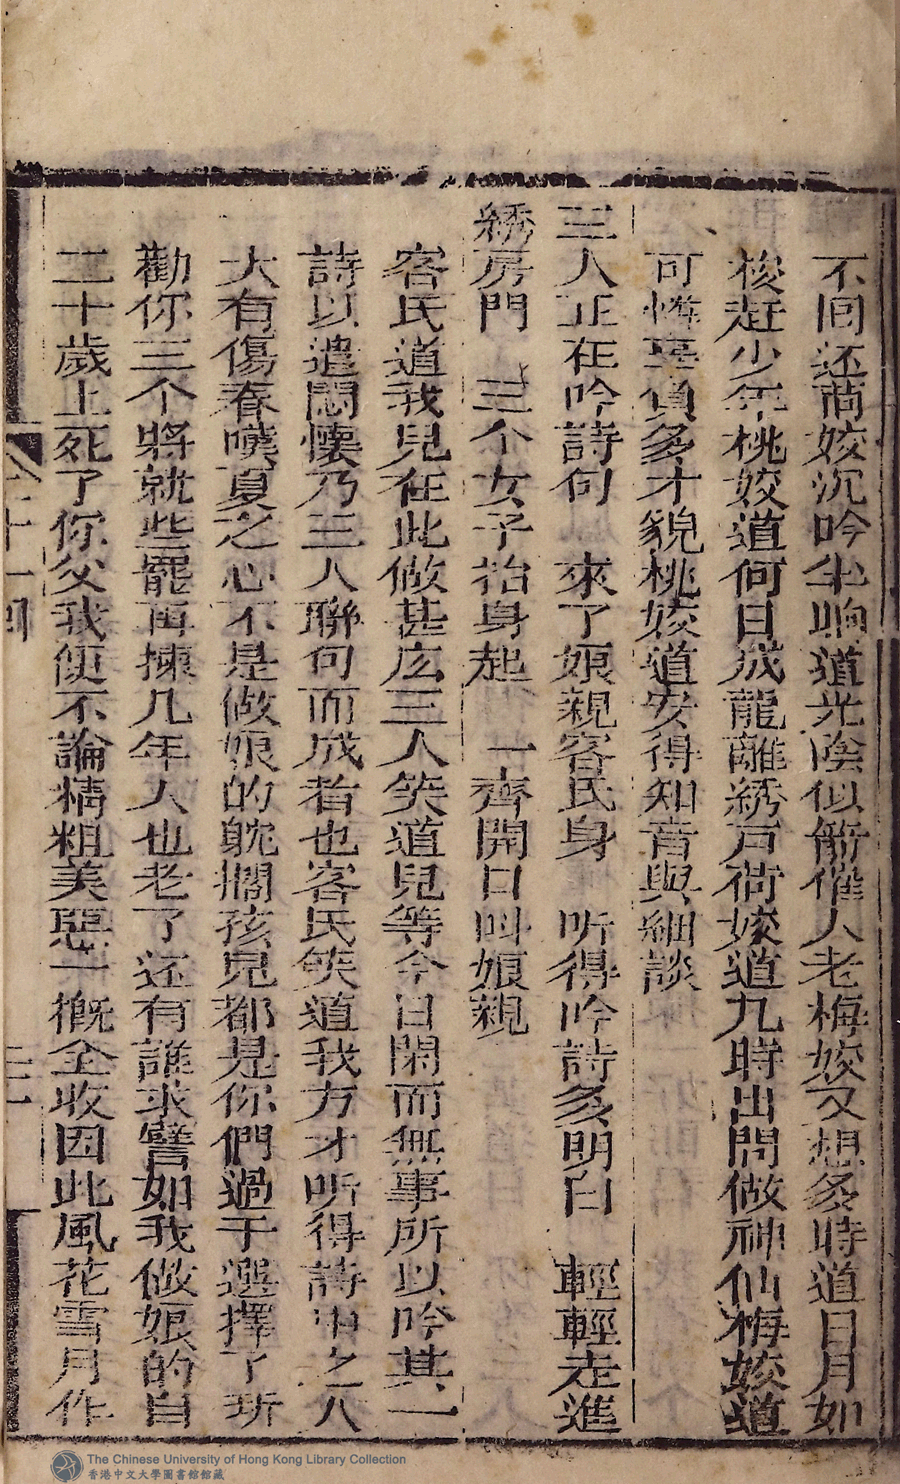 不回还荷姣沉吟半晌道光陰似箭催人老梅姣又想多時道日月如
梭赶少年桃姣道何日成龍離綉戶荷姣道九時出問做神仙梅姣道
可憐辜負多才貌桃姣道安得知音與細談
三人正在吟詩句　來了娘親客氏身　听得吟詩多明白　輕輕走進
綉房門　三个女子抬身起　一齊開口叫娘親
客氏道我兒在此做甚庅三人笑道兒等今日閑而無事所以吟其一
詩以遣悶懷乃三人聯句而成者也客氏笑道我方才听得詩中之八
大有傷春嘆夏之心不是做娘的躭擱孩兒都是你們過于選擇了所
勸你三个將就些罷再揀几年人也老了还有誰求譬如我做娘的自
二十歲上死了你父我便不論精粗美惡一概全收因此風花雪月作
The Chinese University of Hong Kong Library Collection
香港中文大學圖書館館藏